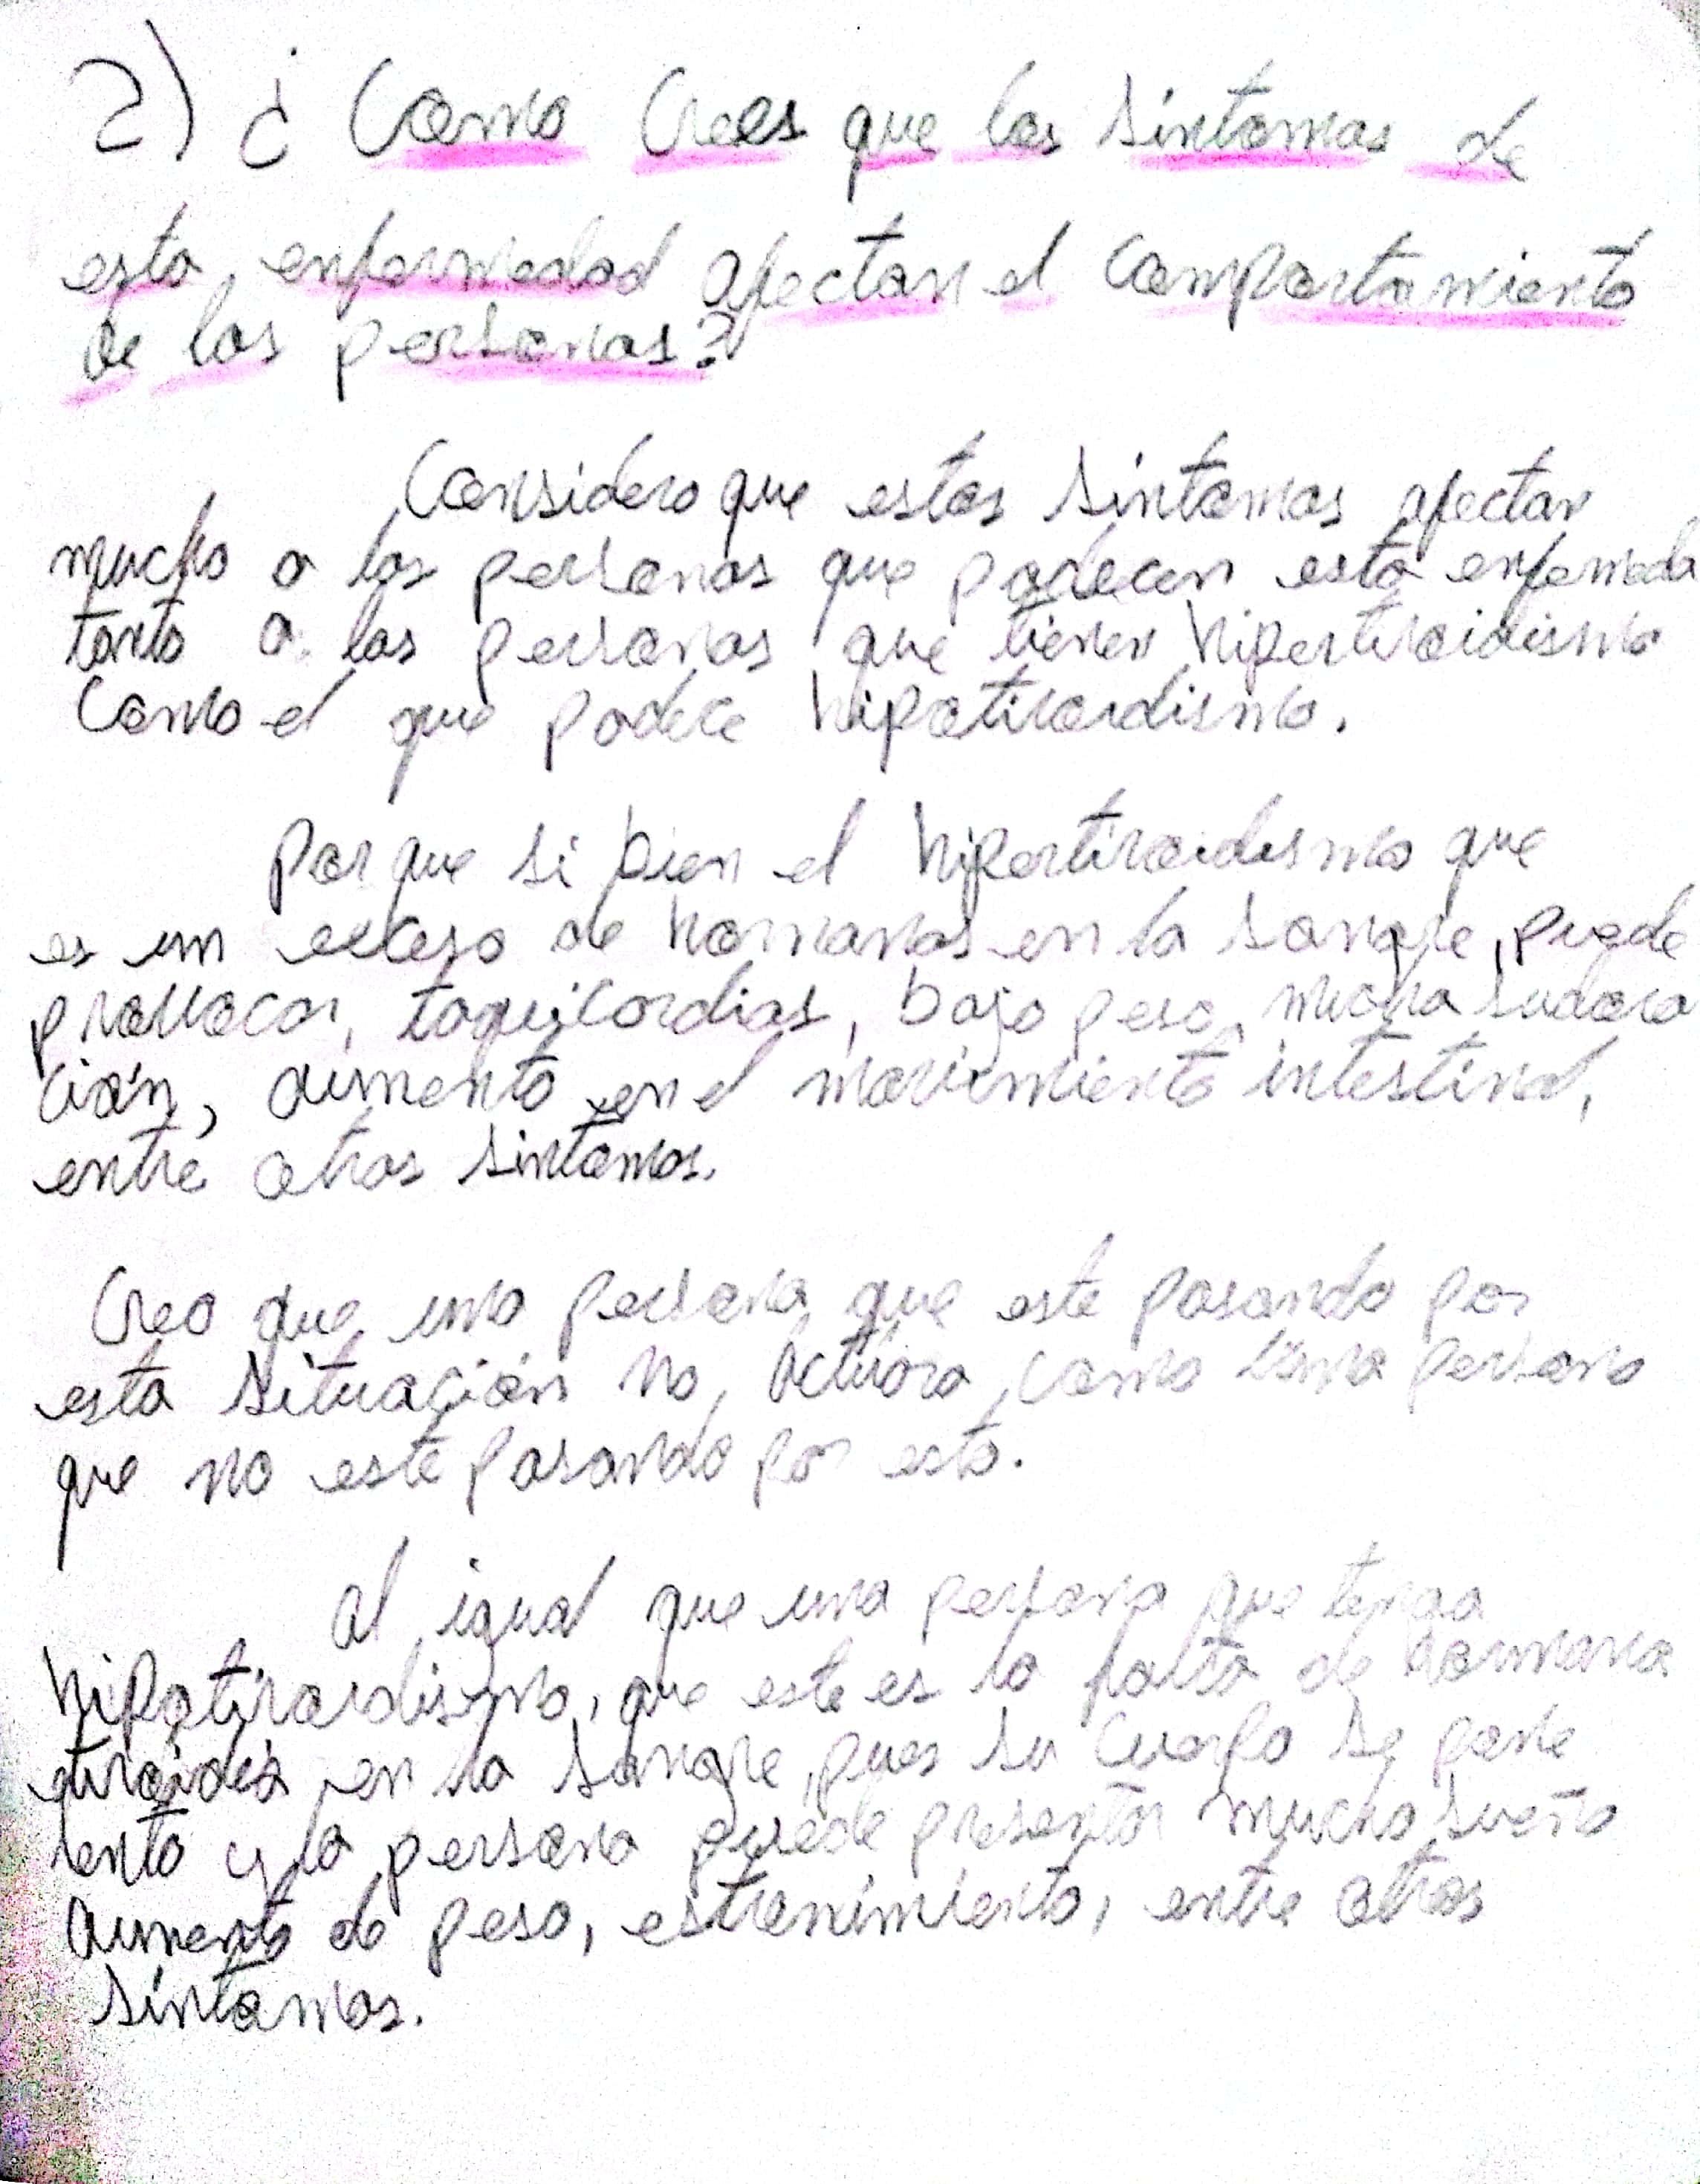 2) ¿Como Crees que los sintomas de
esta enfermedad afectan el comportamiento
de las personas?
Considero que estos sintomas afectan
mucho a las personas que padecen esta enfermeda
tanto a las personas que tienen hipertiroidismo
Como el que padece hipotiroidismo.
Por que si bien el hipertiroidismo que
es un exceso de hormonas en la sangre, puede
provocar, taquicardias, bajo peso, mucha sudora
ción, aumento en el movimiento intestinal,
entre otros sintomas.
Creo que una persona que este pasando por
esta situación no, actuara como una persona
que no este pasando por esto.
Al igual que una persona que tenga
hipotiroidismo, que este es la falta de hormona
tiroidea en la sangre, pues su cuerpo se pone
lento y la persona puede presentar mucho sueño
aumento de peso, estrenimiento, entre otros
sintomas.